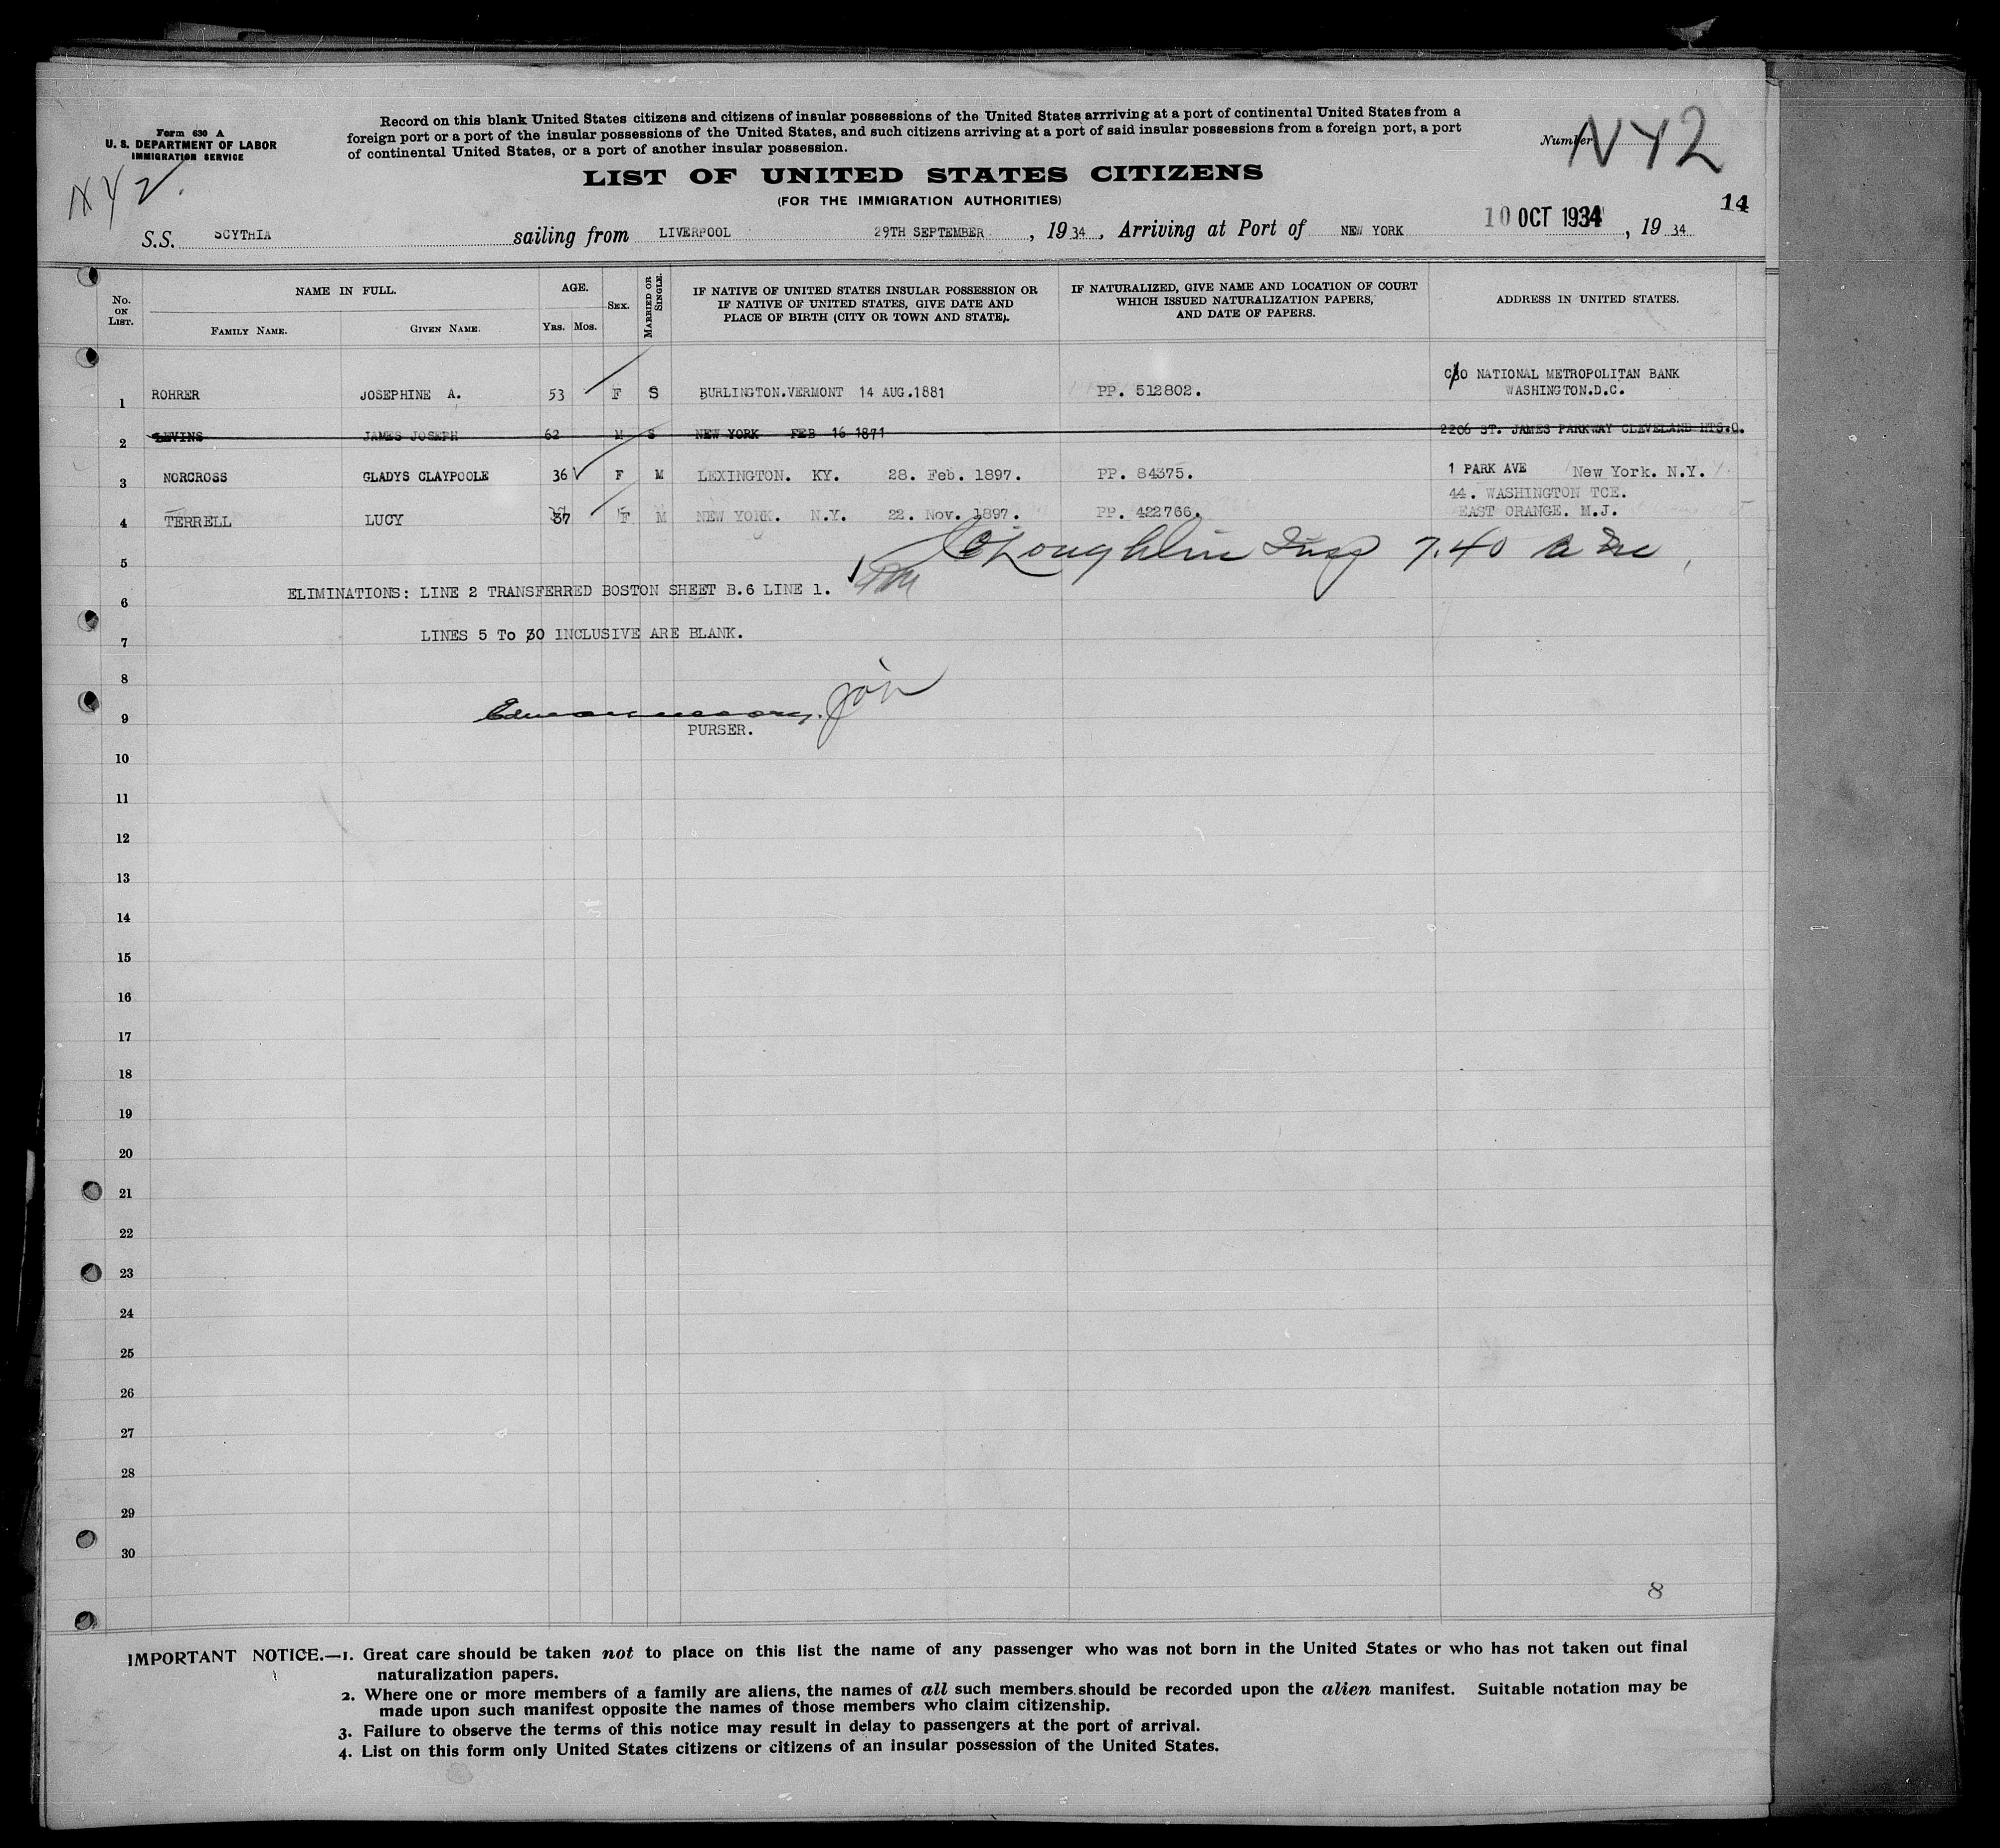 Form 630 A
U. S. DEPARTMENT OF LABOR
IMMIGRATION SERVICE
NY2
Record on this blank United States citizens and citizens of insular possessions of the United States arrriving at a port of continental United States from a
foreign port or a port of the insular possessions of the United States, and such citizens arriving at a port of said insular possessions from a foreign port, a port
of continental United States, or a port of another insular possession.
Number NY2
LIST OF UNITED STATES CITIZENS
(FOR THE IMMIGRATION AUTHORITIES)
14
S.S. SCYTHIA sailing from LIVERPOOL 29TH SEPTEMBER, 1934, Arriving at Port of NEW YORK 10 OCT 1934, 1934
No. ON LIST.
NAME IN FULL.
FAMILY NAME. GIVEN NAME.
AGE.
YRS. MOS.
SEX.
MARRIED OR SINGLE.
IF NATIVE OF UNITED STATES INSULAR POSSESSION OR
IF NATIVE OF UNITED STATES, GIVE DATE AND
PLACE OF BIRTH (CITY OR TOWN AND STATE).
IF NATURALIZED, GIVE NAME AND LOCATION OF COURT
WHICH ISSUED NATURALIZATION PAPERS,
AND DATE OF PAPERS.
ADDRESS IN UNITED STATES.
1 ROHRER JOSEPHINE A. 53 F S BURLINGTON.VERMONT 14 AUG.1881 PP. 512802. C/O NATIONAL METROPOLITAN BANK
WASHINGTON.D.C.
2 LEVINS JAMES JOSEPH 62 M S NEW YORK FEB 16 1871 2206 ST. JAMES PARKWAY CLEVELAND HTS.O.
3 NORCROSS GLADYS CLAYPOOLE 36 F M LEXINGTON. KY. 28. Feb. 1897. PP. 84375. 1 PARK AVE New York. N.Y.
4 TERRELL LUCY 37 F M NEW YORK. N.Y. 22. Nov. 1897. PP. 422766. 44. WASHINGTON TCE.
EAST ORANGE. M.J.
5 O'Loughlin Insp 7.40
6 ELIMINATIONS: LINE 2 TRANSFERRED BOSTON SHEET B.6 LINE 1.
7 LINES 5 To 30 INCLUSIVE ARE BLANK.
8
9
PURSER.
10
11
12
13
14
15
16
17
18
19
20
21
22
23
24
25
26
27
28
29
30
8
IMPORTANT NOTICE.—1. Great care should be taken not to place on this list the name of any passenger who was not born in the United States or who has not taken out final
naturalization papers.
2. Where one or more members of a family are aliens, the names of all such members should be recorded upon the alien manifest. Suitable notation may be
made upon such manifest opposite the names of those members who claim citizenship.
3. Failure to observe the terms of this notice may result in delay to passengers at the port of arrival.
4. List on this form only United States citizens or citizens of an insular possession of the United States.